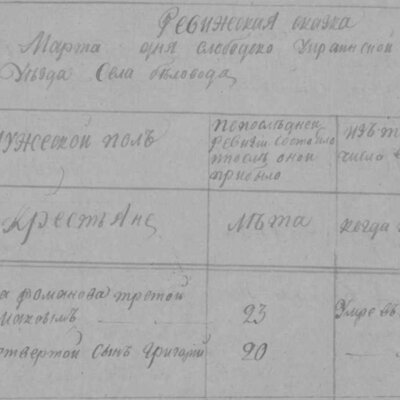 Ревижския сказка
Марта дня слободско Украинской
Уезда Села бѣловода
мужеской полъ
По последней ревизи состояло и после оной прибыло
изъ т
число
Крестьяне
Лѣта
когда
а романова третой
23
Умре въ
четвертой сынъ Григорий
20